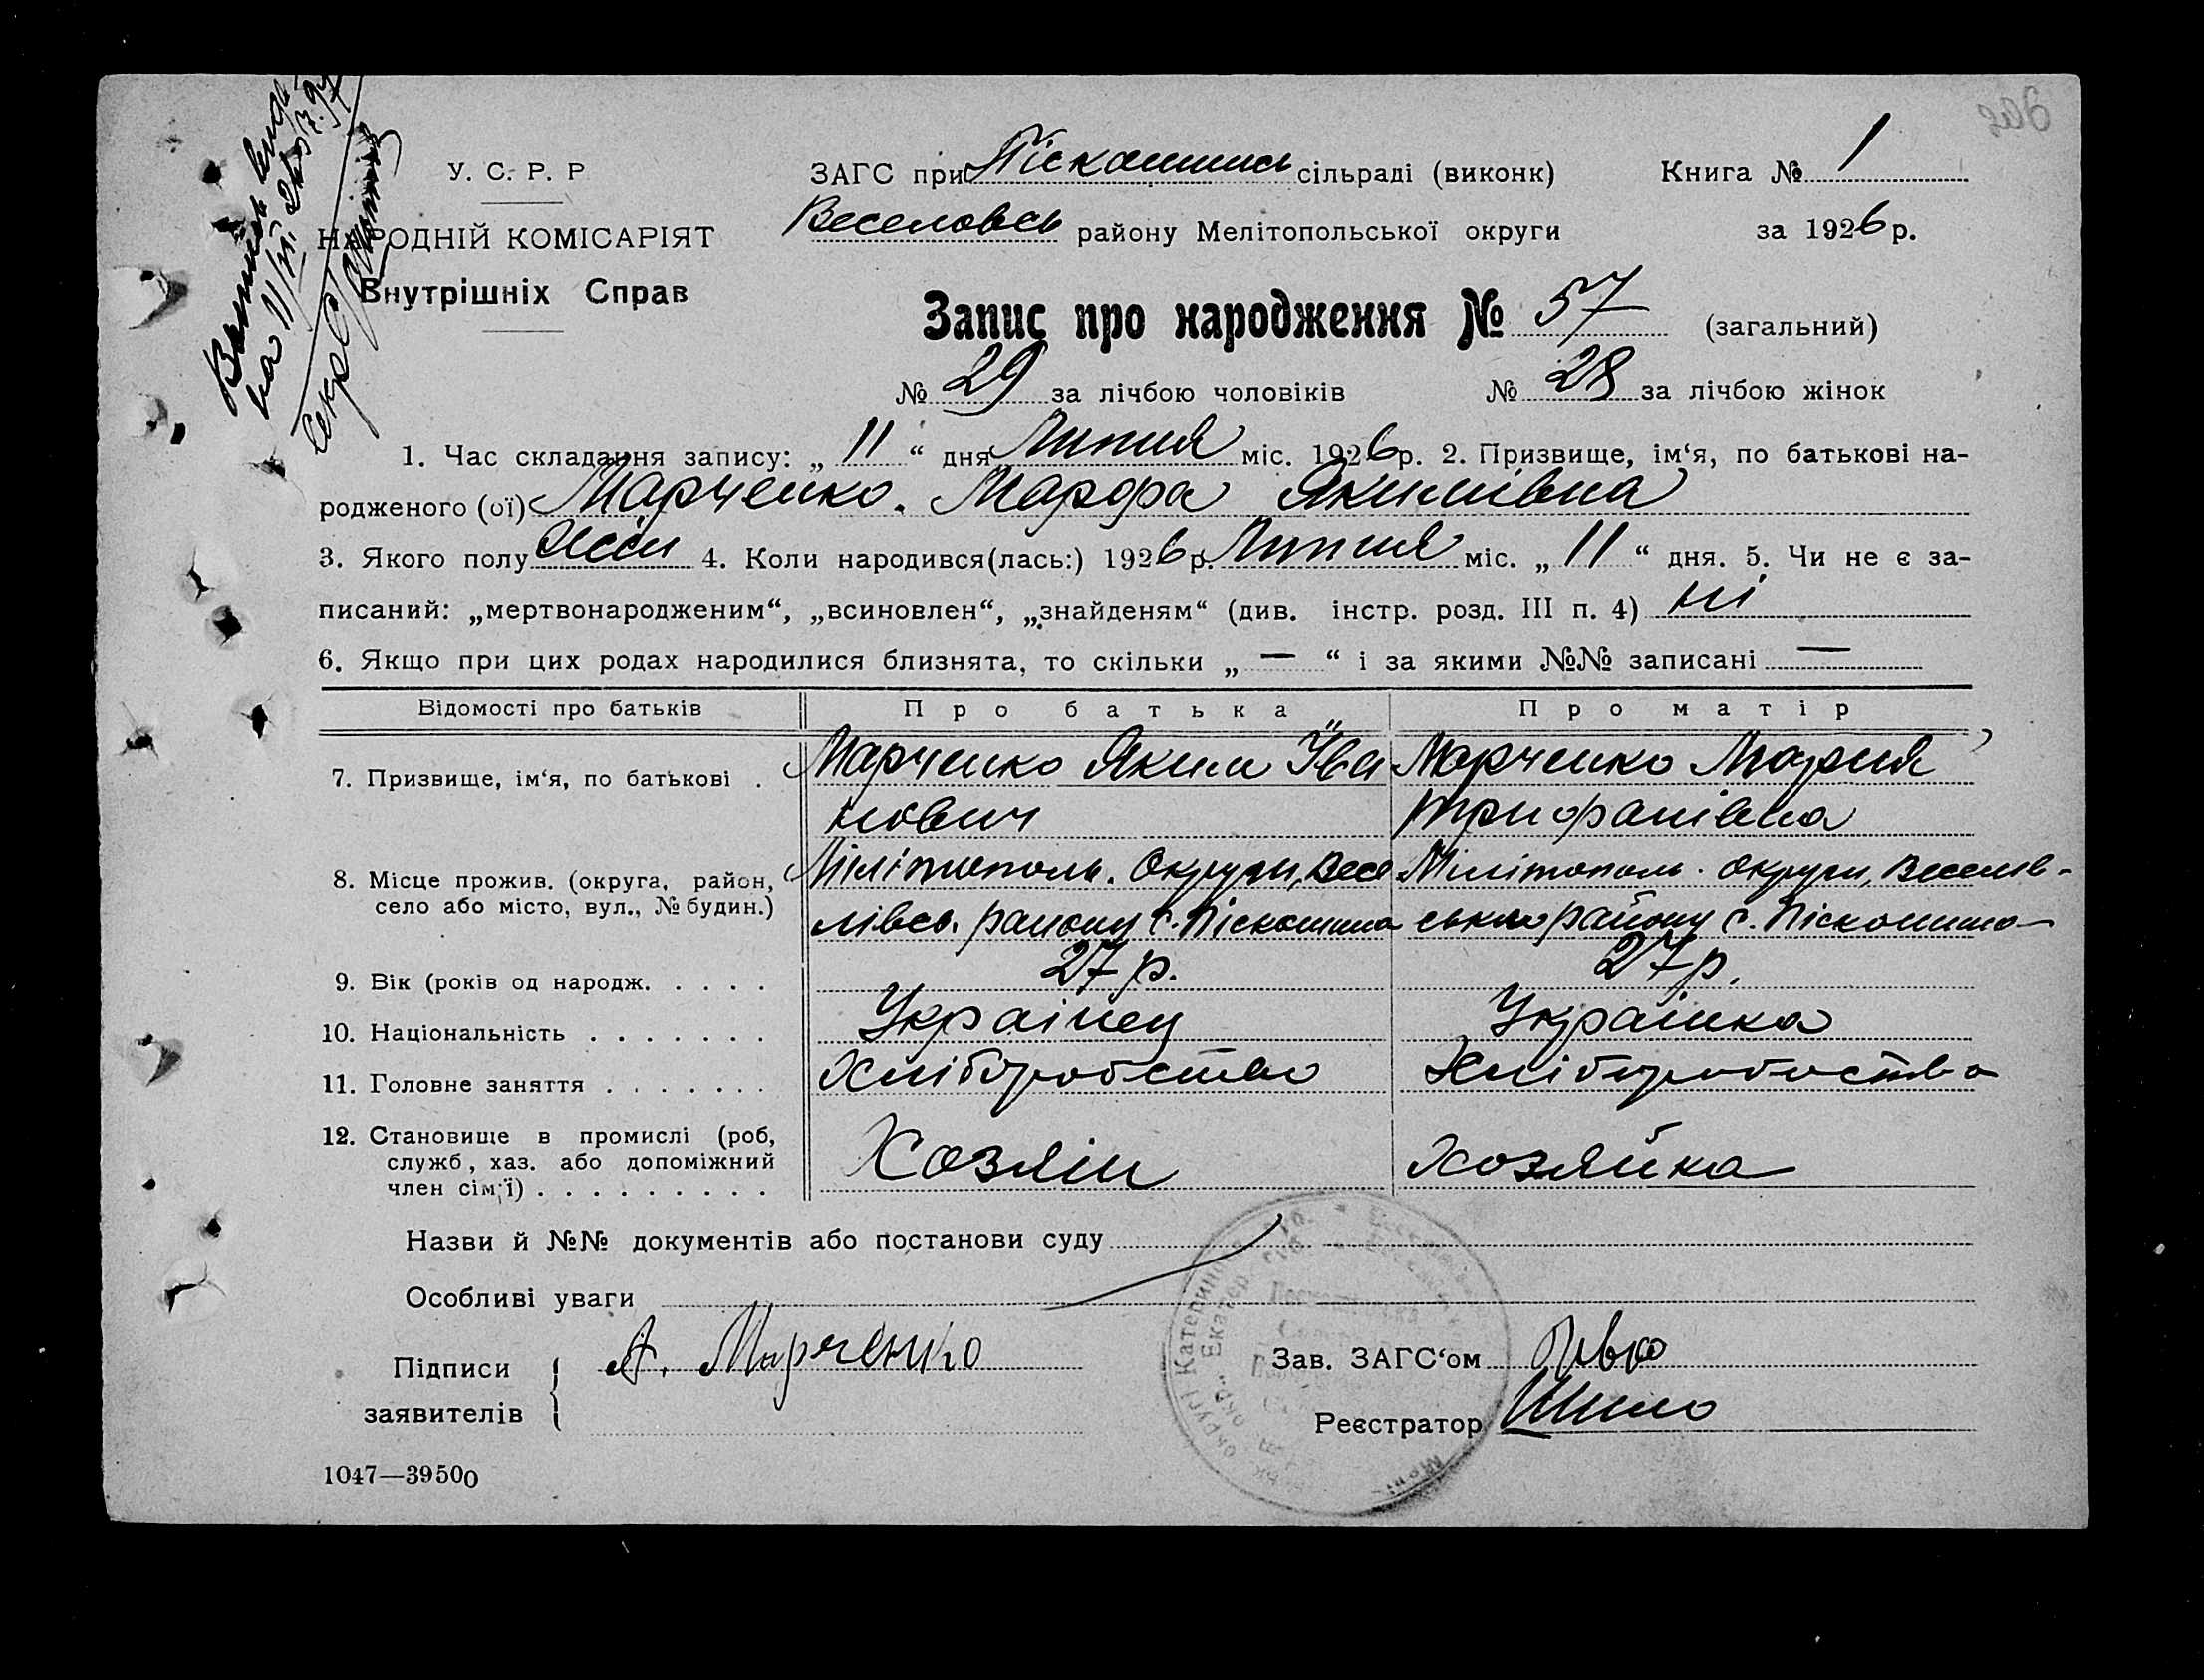 У. С. Р. Р
НАРОДНІЙ КОМІСАРІЯТ
Внутрішніх Справ
ЗАГС при Піскошинсь сільраді (виконк) Книга № 1
Веселовсь району Мелітопольської округи за 1926 р.
Запис про народження № 57 (загальний)
№ 29 за лічбою чоловіків № 28 за лічбою жінок
1. Час складання запису: „ 11 “ дня Липня міс. 1926 р. 2. Призвище, ім‘я, по батькові на-
родженого (ої) Марченко. Марфа Якимівна
3. Якого полу жін 4. Коли народився(лась:) 1926 р. Липня міс. „ 11 “ дня. 5. Чи не є за-
писаний: „мертвонародженим“, „всиновлен“, „знайденям“ (див. інстр. розд. III п. 4) ні
6. Якщо при цих родах народилися близнята, то скільки „ — “ і за якими №№ записані —
Відомості про батьків Про батька Про матір
7. Призвище, ім‘я, по батькові . Марченко Яким Іва Марченко Мария
нович Трифанівна
8. Місце прожив. (округа, район, Мілітополь. Округи, Весе Мілітополь. округи, Веселів-
село або місто, вул., № будин.) лівсь. району с. Піскошино ського району с. Піскошино
9. Вік (років од народж. . . . . 27 р. 27 р.
10. Національність . . . . . . . Українец Українка
11. Головне заняття . . . . . . . Хліборобство Хліборобоство
12. Становище в промислі (роб,
служб, хаз. або допоміжний Хозяін хозяйка
член сім‘ї) . . . . . . . . .
Назви й №№ документів або постанови суду
Особливі уваги
Підписи А. Марченко Зав. ЗАГС‘ом
заявителів Реєстратор Шило
1047—39500